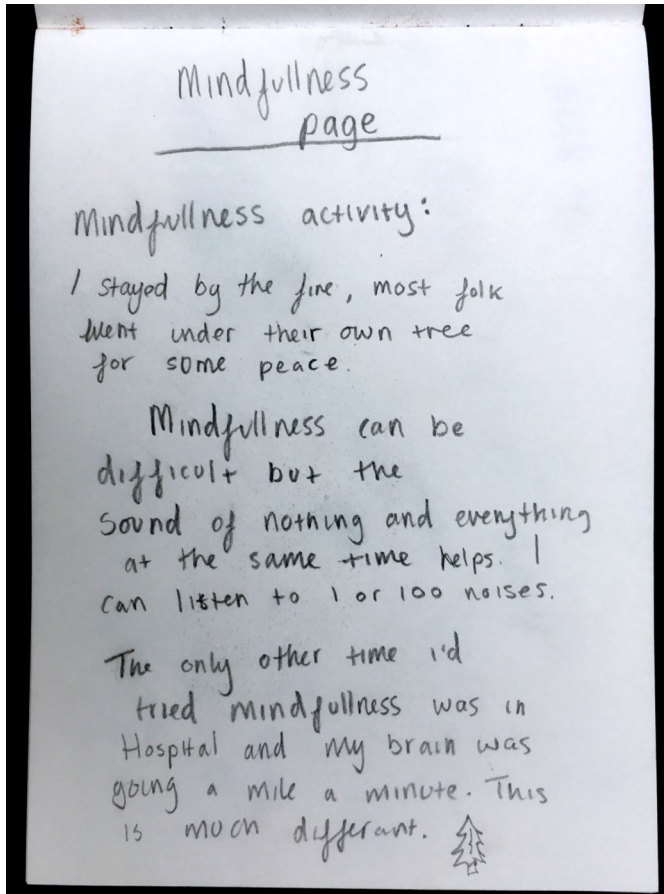 Mindfullness
page
Mindfullness activity:
I stayed by the fire, most folk
went under their own tree
for some peace.
Mindfullness can be
difficult but the
sound of nothing and everything
at the same time helps. I
can listen to 1 or 100 noises.
The only other time i'd
tried mindfullness was in
Hospital and my brain was
going a mile a minute. This
is much differant.